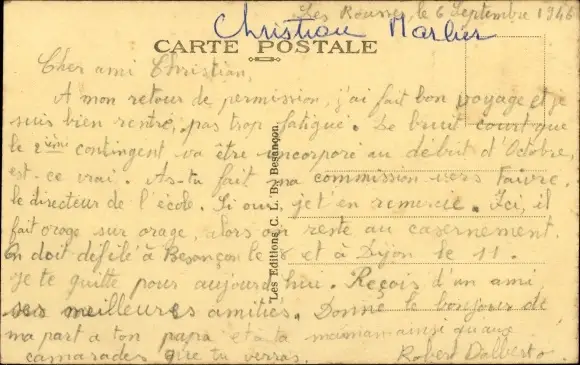 Les Rousses, le 6 Septembre 1946
Christian Marlier
CARTE POSTALE
Cher ami Christian,
A mon retour de permission, j'ai fait bon voyage et je
suis bien rentré, pas trop fatigué. Le bruit court que
le 2ème contingent va être incorporé au début d'Octobre,
est-ce vrai. As-tu fait ma commission vers
le directeur de l'école. Si oui, je t'en remercie. Ici, il
fait orage sur orage, alors on reste au casernement.
On doit défilé à Besançon le 8 et à Dijon le 11.
Je te quitte pour aujourd'hui. Reçois d'un ami
ses meilleures amitiés. Donne le bonjour de
ma part a ton papa et a ta maman ainsi qu'aux
camarades que tu verras. Robert Dalberto
Les Editions C. L. B., Besançon